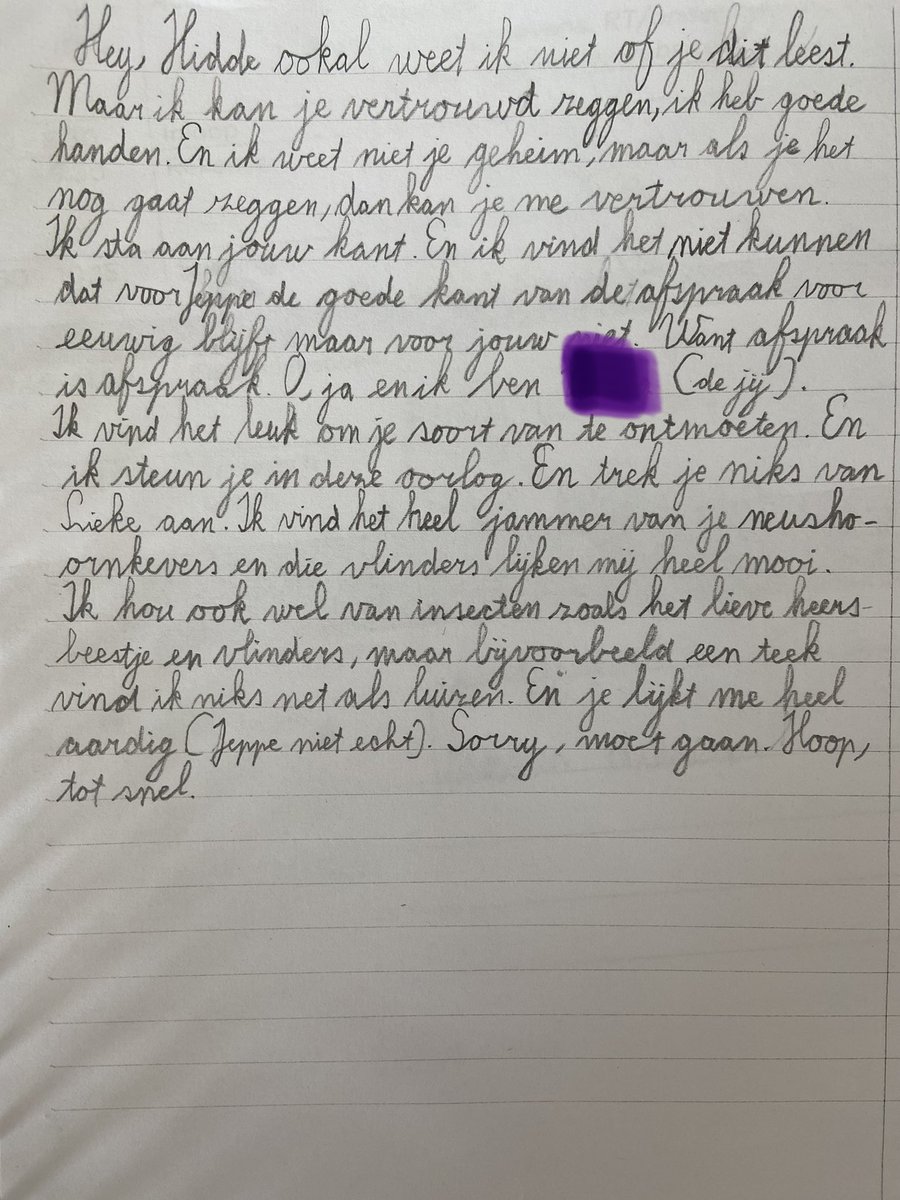 Hey, Hidde ookal weet ik niet of je dit leest.
Maar ik kan je vertrouwd zeggen, ik heb goede
handen. En ik weet niet je geheim, maar als je het
nog gaat zeggen, dan kan je me vertrouwen.
Ik sta aan jouw kant. En ik vind het niet kunnen
dat voor Jeppe de goede kant van de afspraak voor
eeuwig blijft maar voor jouw niet. Want afspraak
is afspraak. O, ja en ik ben (de jij).
Ik vind het leuk om je soort van te ontmoeten. En
ik steun je in deze oorlog. En trek je niks van
Lieke aan. Ik vind het heel jammer van je neusho-
ornkevers en die vlinders lijken mij heel mooi.
Ik hou ook wel van insecten zoals het lieve heers-
beestje en vlinders, maar bijvoorbeeld een teek
vind ik niks net als luizen. En je lijkt me heel
aardig (Jeppe niet echt). Sorry, moet gaan. Hoop,
tot snel.